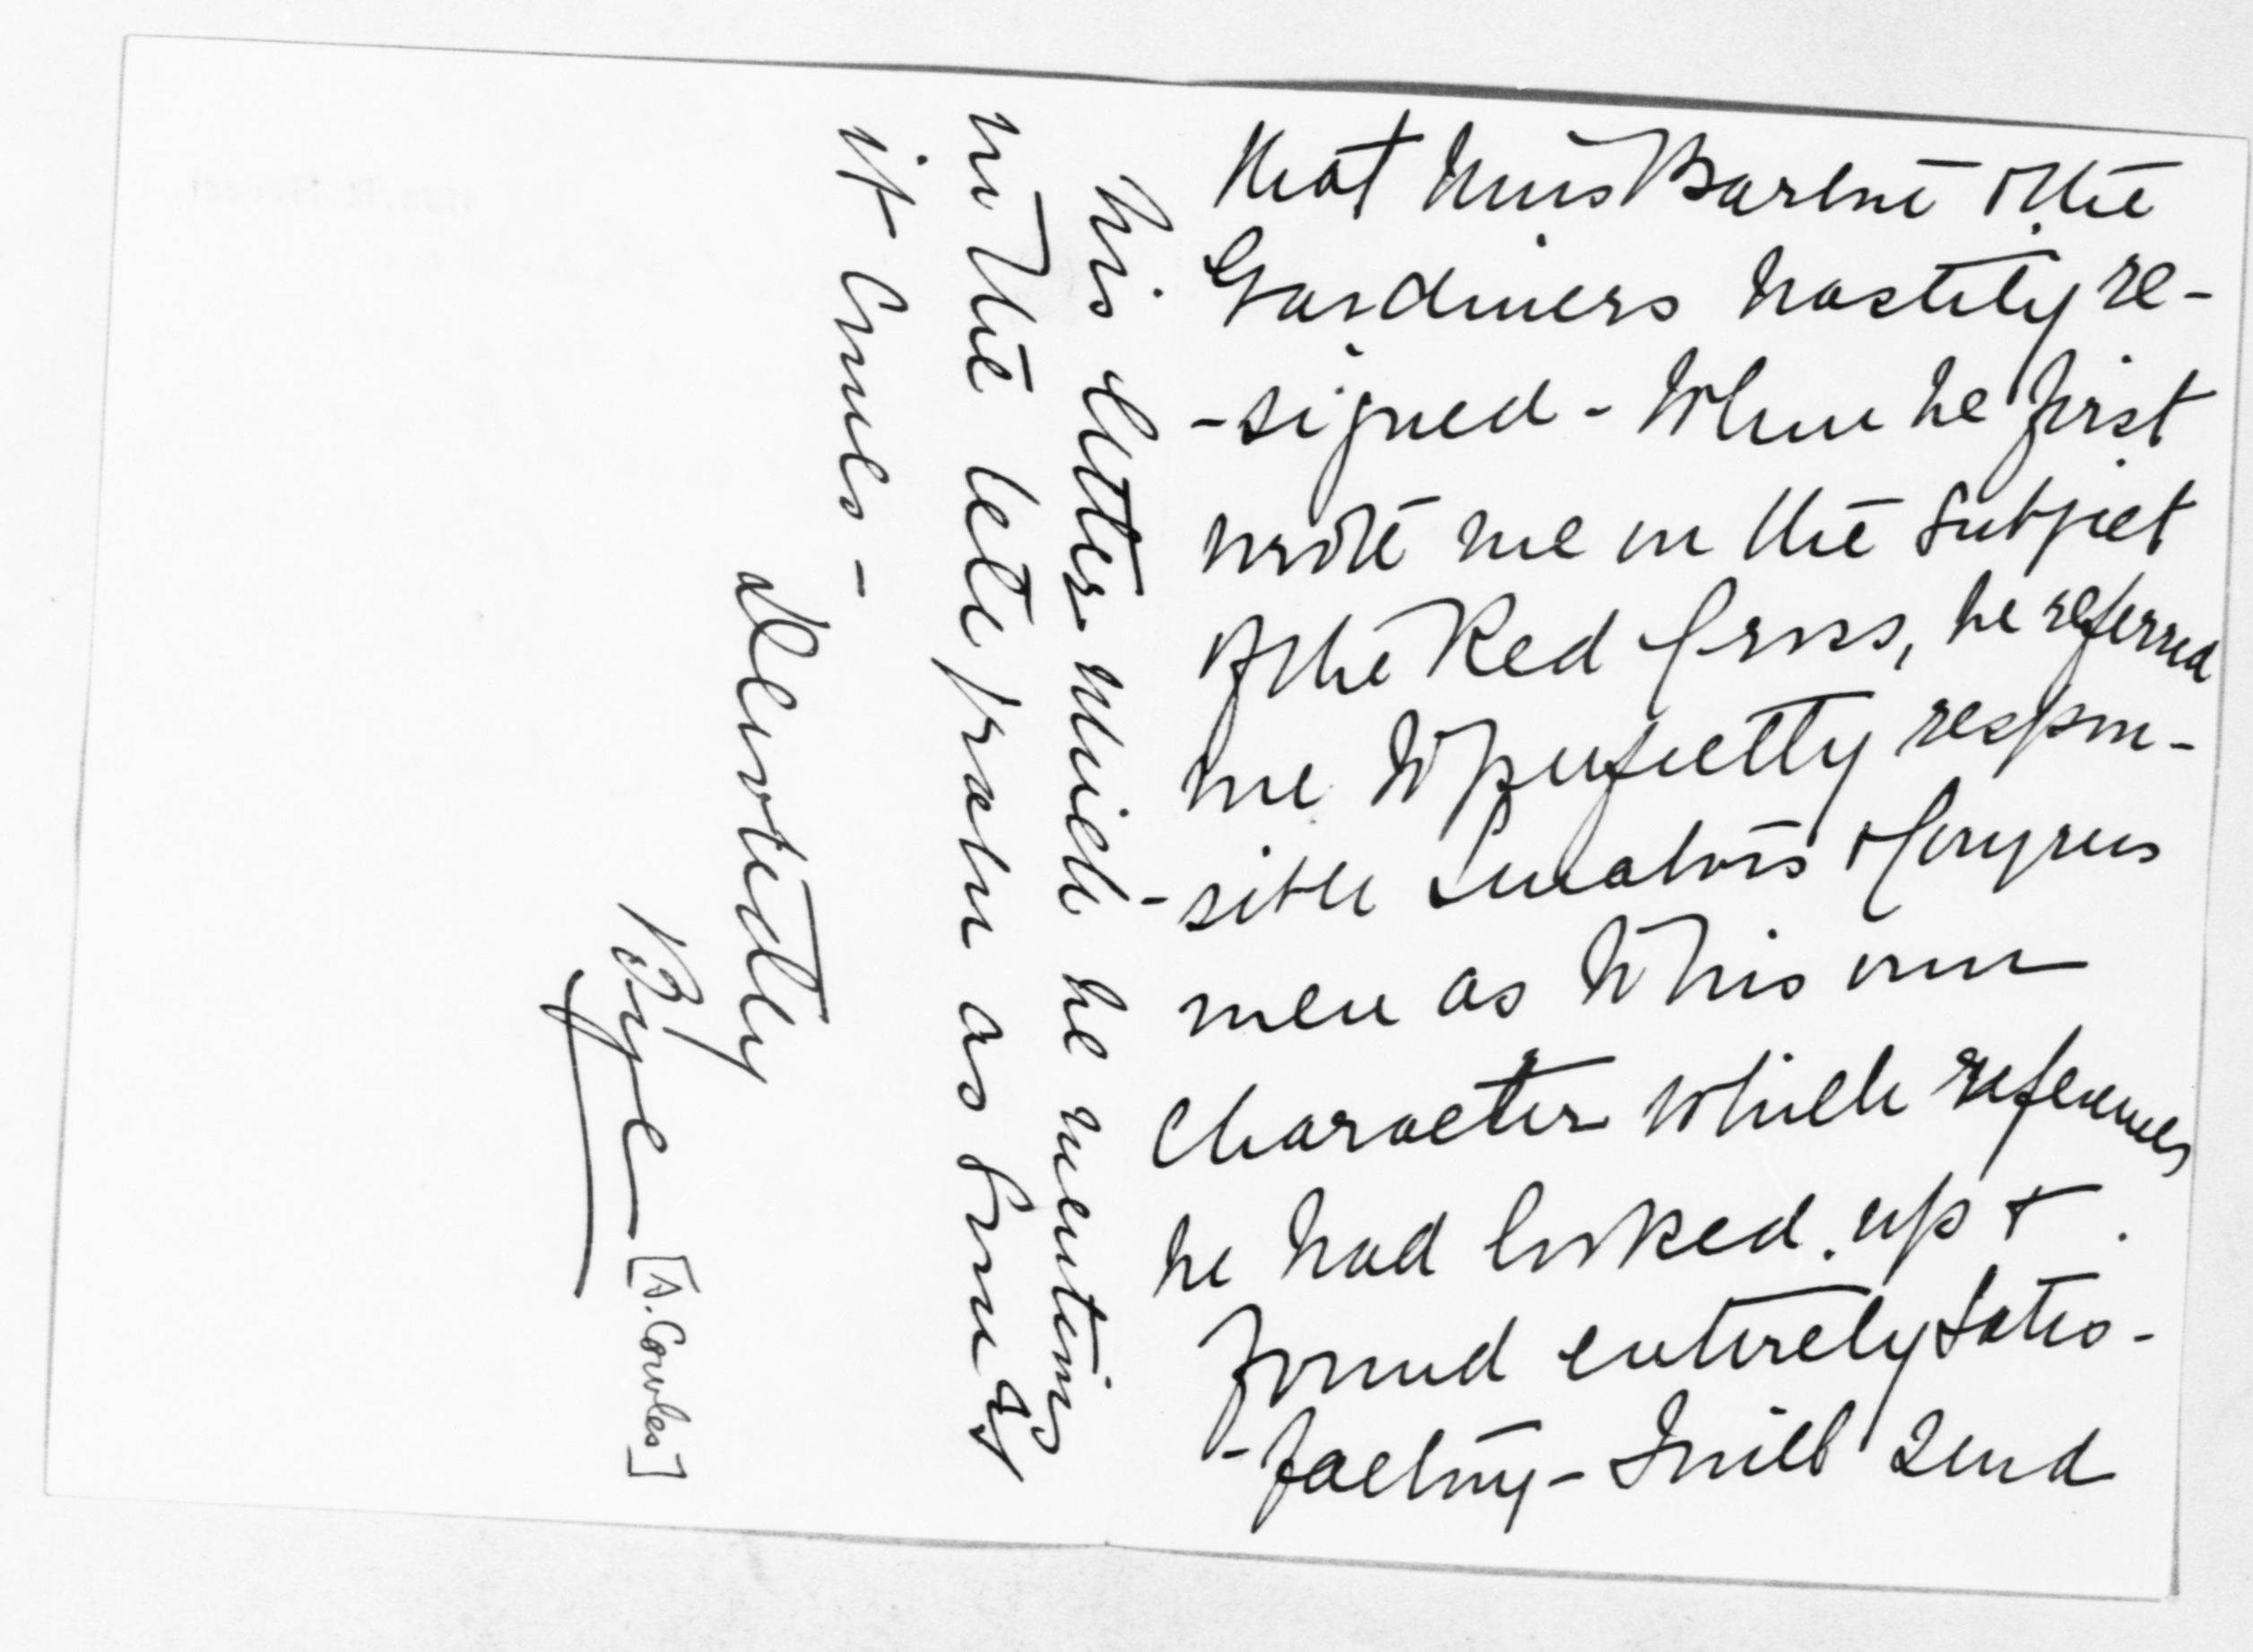 that Miss Barton & the
Gardiners hastily re-
-signed - When he first
wrote me on the subject
of the Red Cross, he referred
me to perfectly respon-
-sible Senators & Congress
men as to his own
character which references
he had looked up &
found entirely satis-
-factory - I will send
his letter which he mentions
in the telegram as soon as
it comes -
Devotedly
Bye
[A. Cowles]